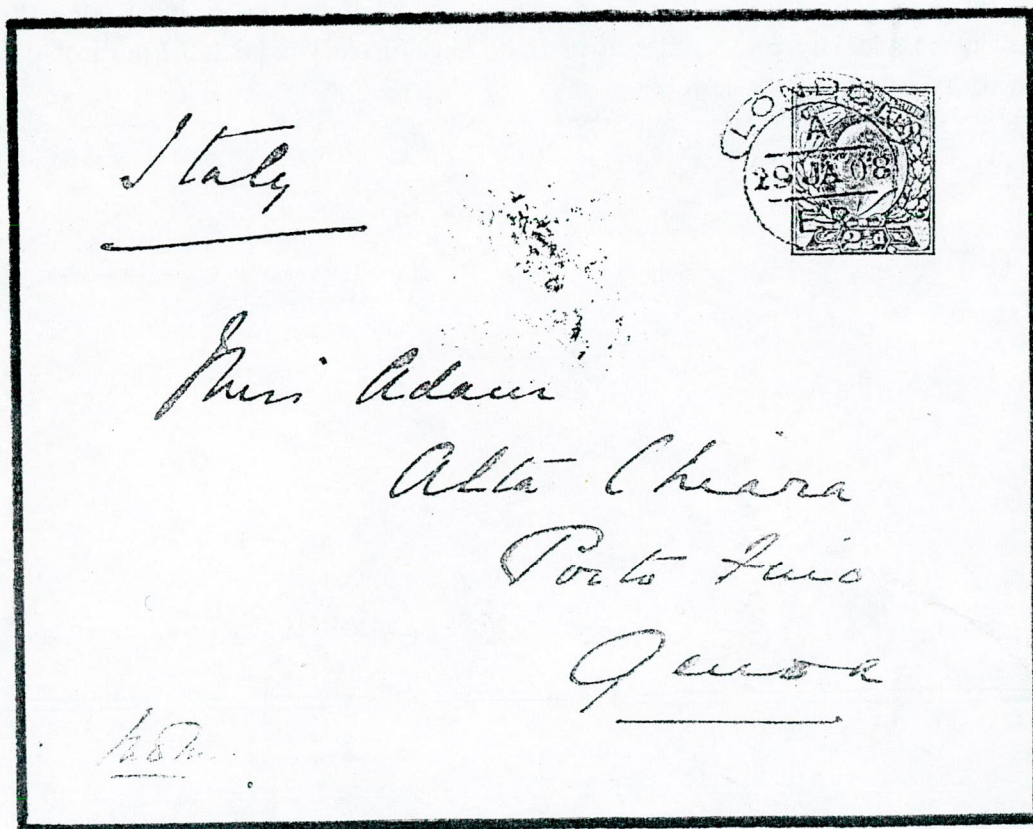 LONDON
A
29 JA 08
Italy
Miss Adams
Alta Chiara
Porto Fino
Genoa